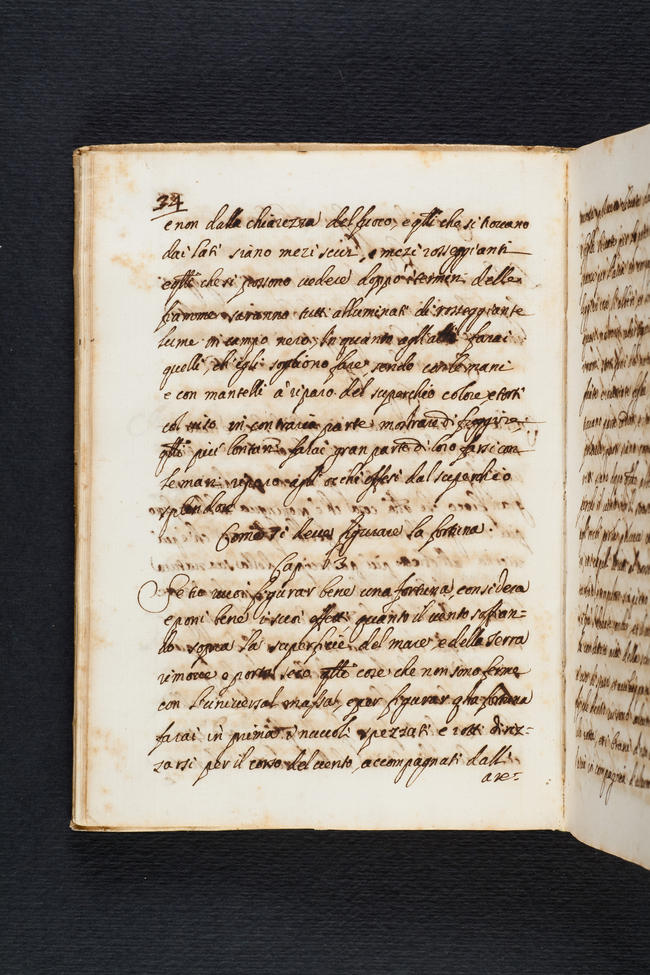 34
e non dalla chiarezza del fuoco, e qlli che si trovano
dai lati siano mezi scuri, e mezi rosseggianti
e qlli che si possono vedere doppo i termini delle
fiamme saranno tutti alluminati di rosseggiante
lume in campo nero; In quanto agli atti farai
quelli, ch'egli sogliono fare, sendo con le mani
e con mantelli à riparo del superchio calore e torti
col viso in contraria parte mostrare di fuggire
qlli più lontani farai gran parte di loro farsi con
le mani riparo agli occhi offesi dal superchio
splendore
Come si deve figurare la fortuna
Cap.
Se tu vuoi figurar bene una fortuna considera
e poni bene i suoi effetti quanto il vento soffian=
do sopra la superficie del mare, e della terra
rimove e porta seco qlle cose che non sono ferme
con l'universal massa, e per figurar qta fortuna
farai in prima i nuvoli spezzati e rotti driz=
zarsi per il corso del vento, accompagnati dalli
are=